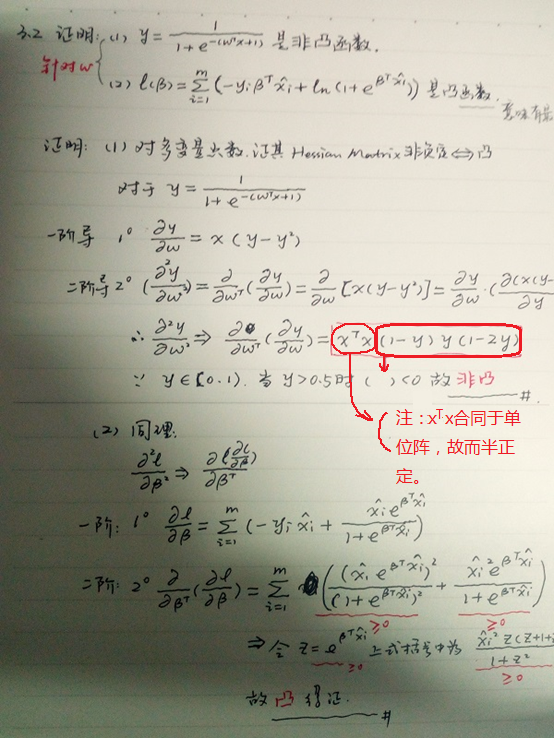 3.2 证明: (1) y = 1 / (1 + e^{-(wᵀx+1)}) 是非凸函数.
针对w
(2) l(β) = Σ_{i=1}^{m} (-yᵢβᵀx̂ᵢ + ln(1+e^{βᵀx̂ᵢ})) 是凸函数.
意味有最
证明: (1) 对多变量函数.证其 Hessian Matrix 非负定 ⇔ 凸
对于 y = 1 / (1 + e^{-(wᵀx+1)})
一阶导 1° ∂y/∂w = x(y-y²)
二阶导 2° (∂²y/∂w²) = ∂/∂wᵀ (∂y/∂w) = ∂/∂w [x(y-y²)] = ∂y/∂w · (∂(x(y-/∂y
∴ ∂²y/∂w² ⇒ ∂/∂wᵀ (∂y/∂w) = xᵀx (1-y) y (1-2y)
∵ y∈[0.1). 当 y>0.5时 ( ) <0 故 非凸 #.
注：xᵀx合同于单
位阵，故而半正
定。
(2) 同理.
∂²l/∂β² ⇒ ∂(∂l/∂β)/∂βᵀ
一阶: 1° ∂l/∂β = Σ_{i=1}^{m} (-yᵢx̂ᵢ + x̂ᵢe^{βᵀx̂ᵢ} / (1+e^{βᵀx̂ᵢ}))
二阶: 2° ∂/∂βᵀ (∂l/∂β) = Σ_{i=1}^{m} ((x̂ᵢe^{βᵀx̂ᵢ})² / (1+e^{βᵀx̂ᵢ})² + x̂ᵢ²e^{βᵀx̂ᵢ} / (1+e^{βᵀx̂ᵢ}))
≥0 ≥0
⇒ 令 z = e^{βᵀx̂ᵢ} 上式括号中为 x̂ᵢ²z(z+1+ / 1+z²
≥0 ≥0
故凸得证.
#